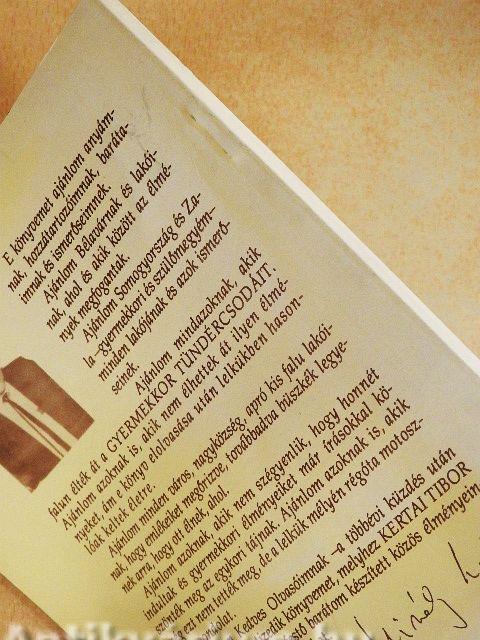 E könyvemet ajánlom anyám-
nak, hozzátartozóimnak, baráta-
imnak és ismerőseimnek.
Ajánlom Bélavárnak és lakói-
nak, ahol és akik között az élmé-
nyek megfogantak
Ajánlom Somogyország és Za-
la -gyermekkori és szülőmegyém-
minden lakójának és azok ismerő-
seinek.
Ajánlom mindazoknak, akik
falun élték át a GYERMEKKOR TÜNDÉRCSODÁIT.
Ajánlom azoknak is, akik nem élhettek át ilyen élmé-
nyeket, ám e könyv elolvasása után lelkükben hason-
lóak keltek életre.
Ajánlom minden város, nagyközség, apró kis falu lakói-
nak, hogy emlékeiket megőrizve, továbbadva büszkék legye-
nek arra, hogy ott élnek, ahol.
Ajánlom azoknak, akik nem szégyenlik, hogy honnét
indultak és gyermekkori élményeiket már írásokkal kö-
szönték meg az egykori tájnak. Ajánlom azoknak is, akik
ezt nem tették meg, de a lelkük mélyén régóta motosz-
Kedves Olvasóimnak -a többévi küzdés után
könyvemet, melyhez KERTAI TIBOR
barátom készített közös élményein